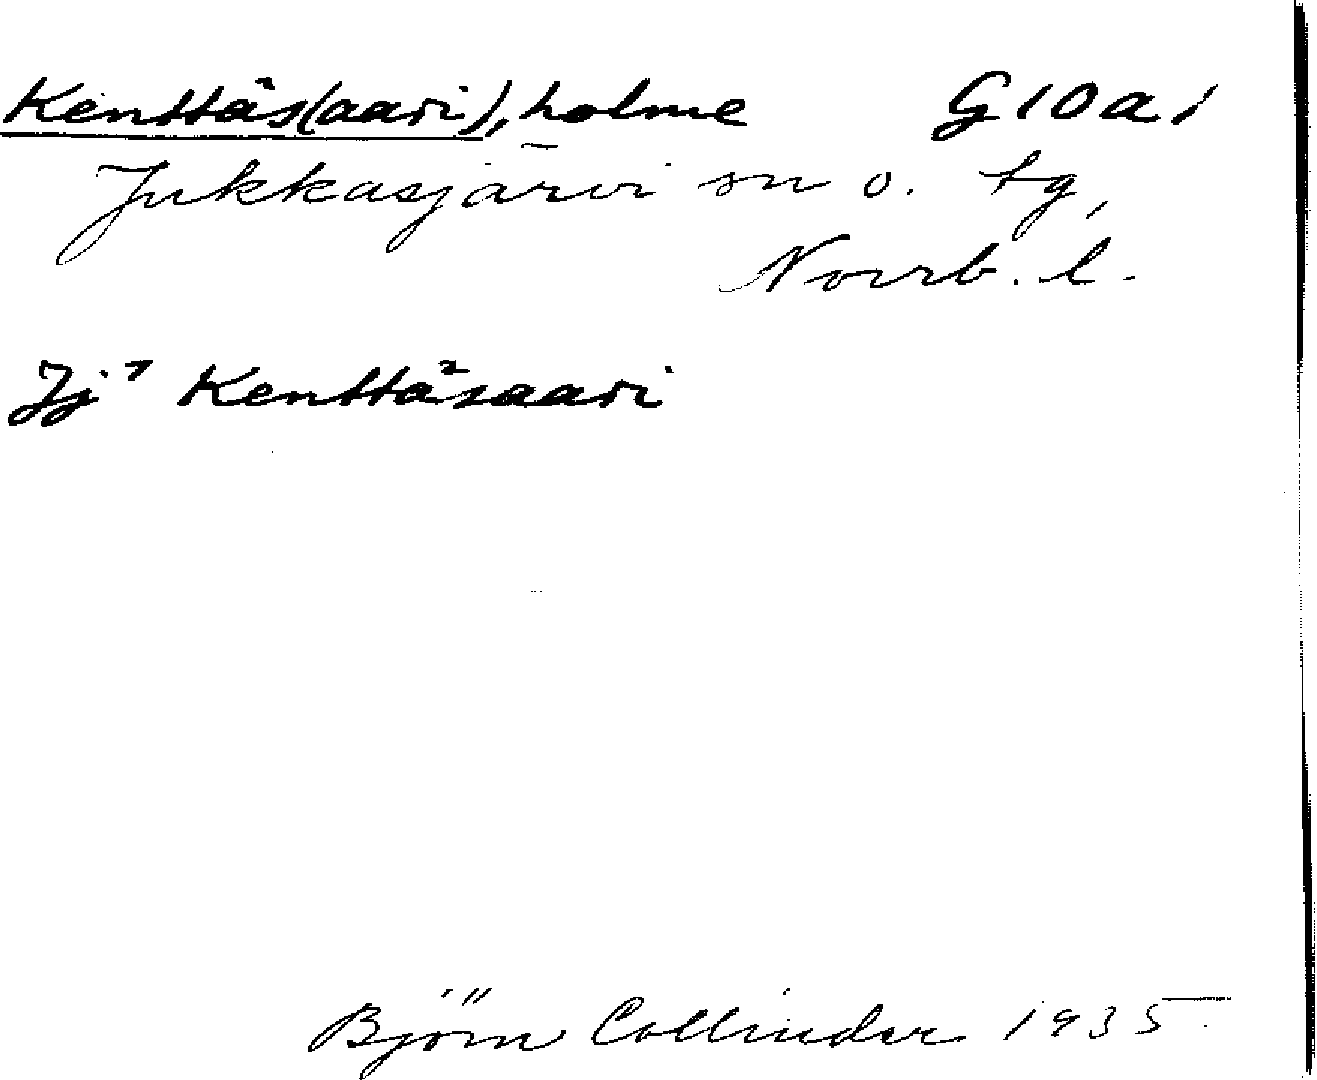 Kenttäs(aari), holme G10a1
Jukkasjärvi sn o. tg,
Norrb. l.
Jj⁷ Kenttäsaari
Björn Collinder 1935.